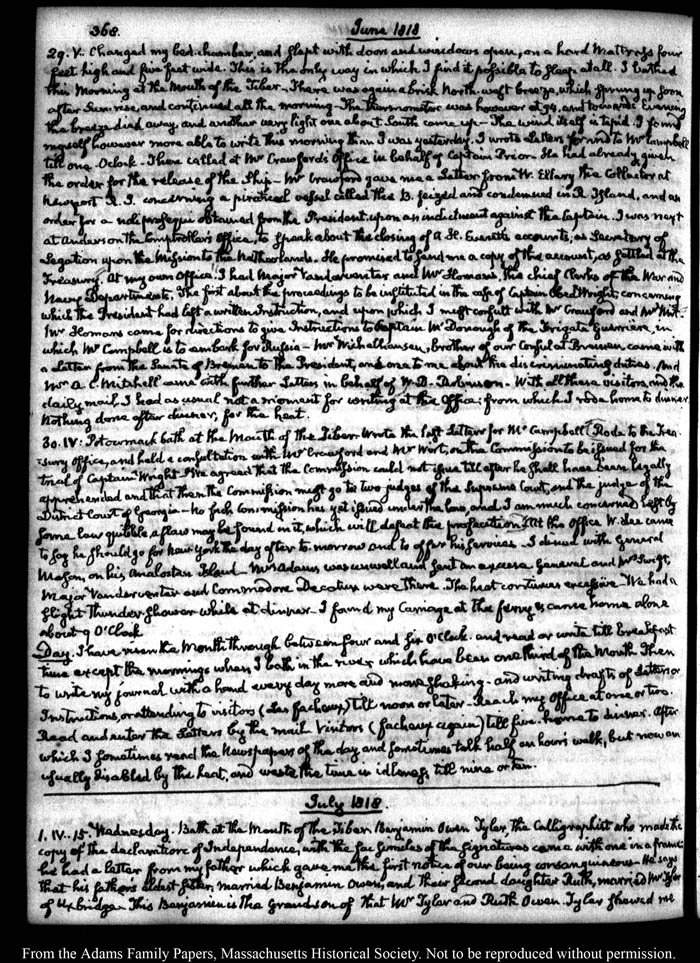 368. June 1818
29. V. Changed my bed-chamber, and slept with doors and windows open, on a hard Mattrass four
feet high and five feet wide. This is the only way in which I find it possible to sleep at all. I bathed
this Morning at the Mouth of the Tiber. There was again a brisk North-west breeze, which sprung up soon
after Sun-rise, and continued all the morning. The thermometer was however at 94, and towards Evening
the breeze died away, and another very light one about South came up. The wind itself is tepid. I found
myself however more able to write this morning than I was yesterday. I wrote Letters for and to Mr Campbell
till one O'clock. I here called at Mr Crawford's Office in behalf of Captain Prior. He had already given
the order for the release of the Ship. Mr Crawford gave me a Letter from W. Ellery the Collector at
Newport R. I. concerning a piratical vessel called the B. seized and condemned in R. Island, and an
order for a noli prosequi obtained from the President, upon an indictment against the Captain. I was next
at Anderson the Comptroller's Office, to speak about the closing of A. H. Everett's accounts, as Secretary of
Legation upon the Mission to the Netherlands. He promised to send me a copy of the account, as settled at the
Treasury. At my own Office, I had Major Vandeventer and Mr Homans, the chief Clerks of the War and
Navy Departments. The first about the proceedings to be instituted in the case of Captain Obed Wright, concerning
which the President had left a written Instruction, and upon which I must consult with Mr Crawford and Mr Wirt.
Mr Homans came for directions to give Instructions to Captain McDonough of the Frigate Guerriere, in
which Mr Campbell is to embark for Russia. Mr Wichelhausen, brother of our Consul at Bremen, came with
a Letter from the Senate of Bremen to the President, and one to me about the discriminating duties. And
Mr A. C. Mitchell came with further Letters in behalf of W. D. Robinson. With all these visitors and the
daily mail, I had as usual not a moment for writing at the Office; from which I rode home to dinner.
Nothing done after dinner, for the heat.
30. IV: Potowmack bath at the Mouth of the Tiber. Wrote the last Letters for Mr Campbell. Rode to the Trea-
sury Office, and held a consultation with Mr Crawford and Mr Wirt, on the Commission to be issued for the
trial of Captain Wright. We agreed that the Commission could not issue till after he shall have been legally
apprehended and that then the Commission must go to two judges of the Supreme Court, and the judge of the
District Court of Georgia. No such Commission has yet issued under the law, and I am much concerned lest by
some law quibble a flaw may be found in it, which will defeat the prosecution. At the Office W. Lee came
to say he should go for New York the day after to-morrow and to offer his services. I dined with General
Mason, on his Analostan Island. Mrs Adams was unwell and sent an excuse. General and Mrs Swift,
Major Vandeventer and Commodore Decatur were there. The heat continues excessive. We had a
slight Thunder Shower while at dinner. I found my Carriage at the ferry & came home alone
about 9 O'Clock
Day. I have risen the Month through between four and six O'Clock. and read or write till breakfast
time except the mornings when I bath in the river which have been one third of the Month. Then
to write my journal with a hand every day more and more shaking. and writing drafts of Letters or
Instructions, or attending to visitors (Les facheux) till noon or later. Reach my Office at one or two.
Read and enter the Letters by the mail. Visitors (facheux again) till five. home to dinner. After
which I sometimes read the Newspapers of the day and sometimes talk half an hour's walk, but now am
usually disabled by the heat, and waste the time in idleness till nine or ten.
July 1818.
1. IV. 15. Wednesday. Bath at the Mouth of the Tiber. Benjamin Owen Tyler, the Calligraphist who made the
copy of the declaration of Independence, with the fac similes of the signatures came with one in a frame;
he had a letter from my father which gave me the first notice of our being consanguineous. He says
that his father's eldest sister, married Benjamin Owen, and their second daughter Ruth, married Mr Tyler
of Uxbridge. This Benjamin is the Grandson of that Mr Tyler and Ruth Owen. Tyler shewed me
From the Adams Family Papers, Massachusetts Historical Society. Not to be reproduced without permission.